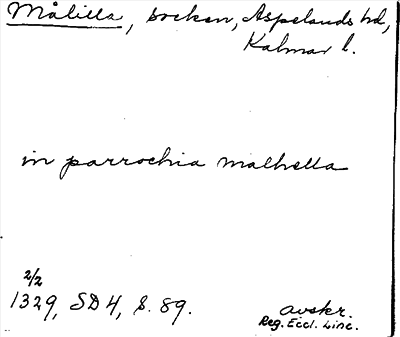 Målilla, socken, Aspelands hd,
Kalmar l.
in parrochia malhella
2/2
1329, SD 4, S. 89.
avskr.
Reg. Eccl. Linc.